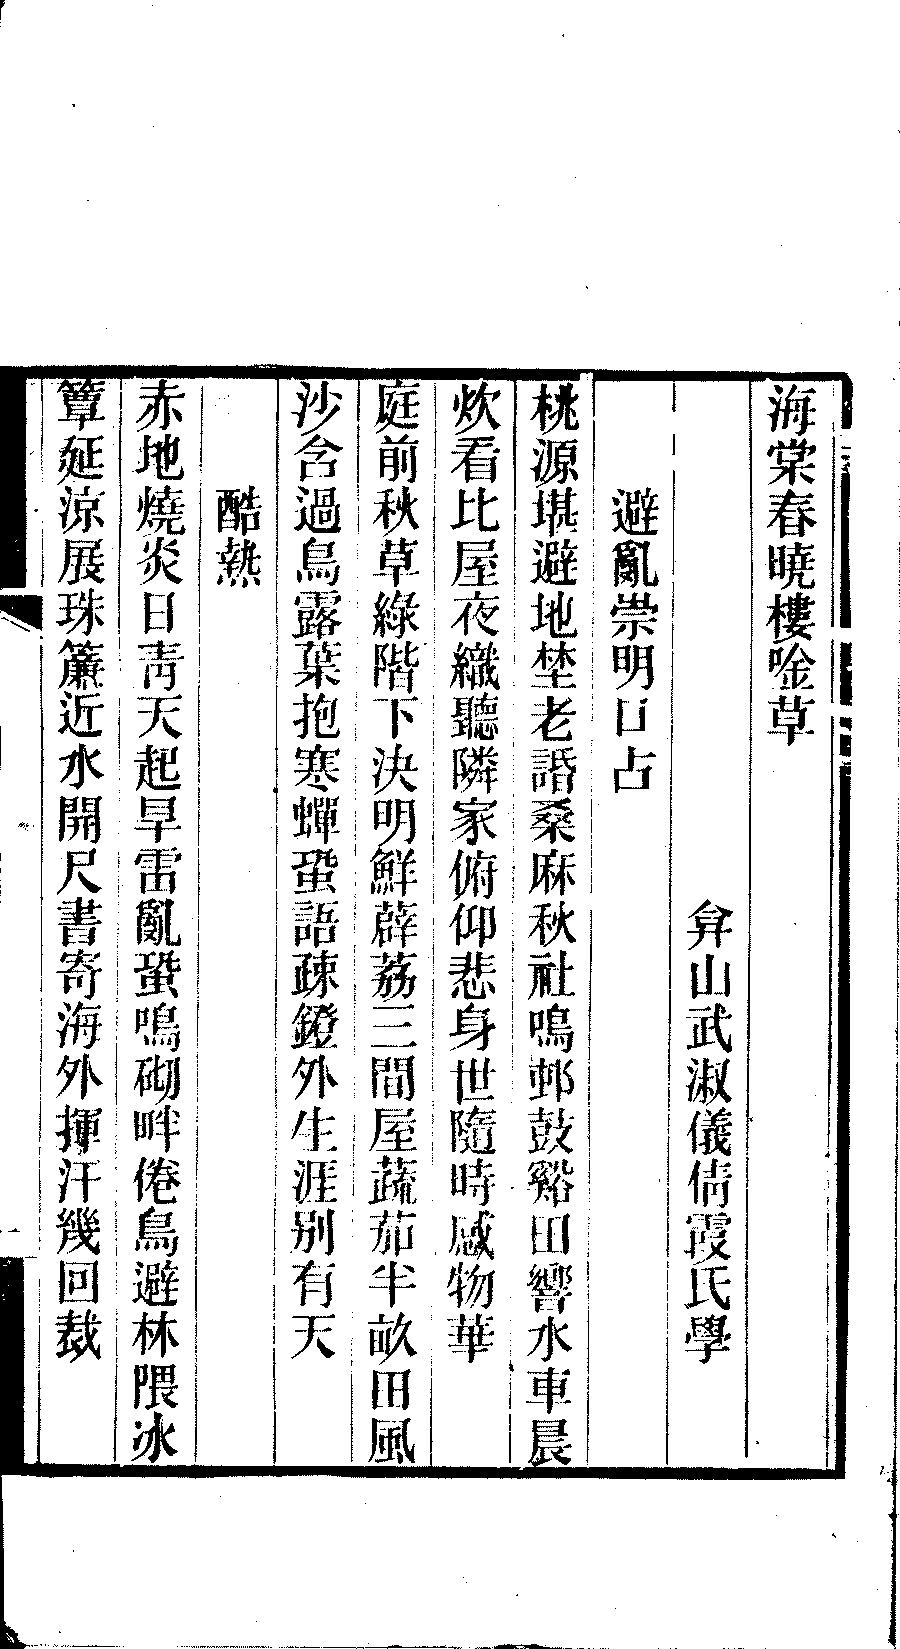 海棠春曉樓唫草
弇山武淑儀倩霞氏學
避亂崇明口占
桃源堪避地埜老話桑麻秋社鳴邨鼓谿田響水車晨
炊看比屋夜織聽隣家俯仰悲身世隨時感物華
庭前秋草綠階下決明鮮薜荔三間屋蔬茄半畝田風
沙含過鳥露葉抱寒蟬蛩語疎鐙外生涯别有天
酷熱
赤地燒炎日靑天起旱雷亂蛩鳴砌畔倦鳥避林隈冰
簟延涼展珠簾近水開尺書寄海外揮汗幾回裁